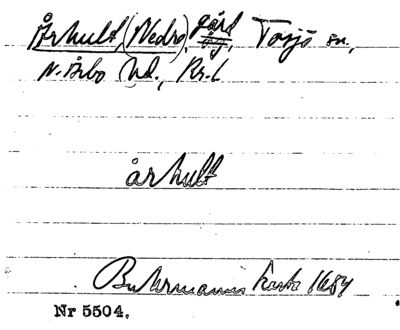 Århult, (Nedre), gård, Tosjö sn.,
N. Åsbo hd., Kr. l.
århult
Buhrmanns karta 1684
Nr 5504.